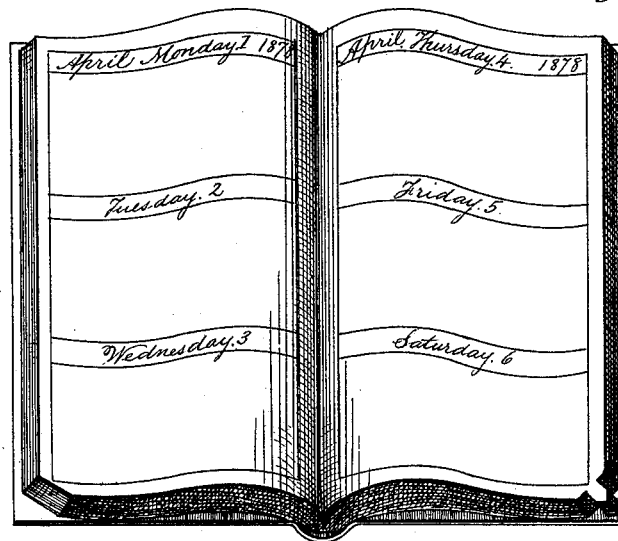 April Monday.1 1878
Tuesday. 2
Wednesday.3
April. Thursday.4. 1878
Friday.5.
Saturday.6